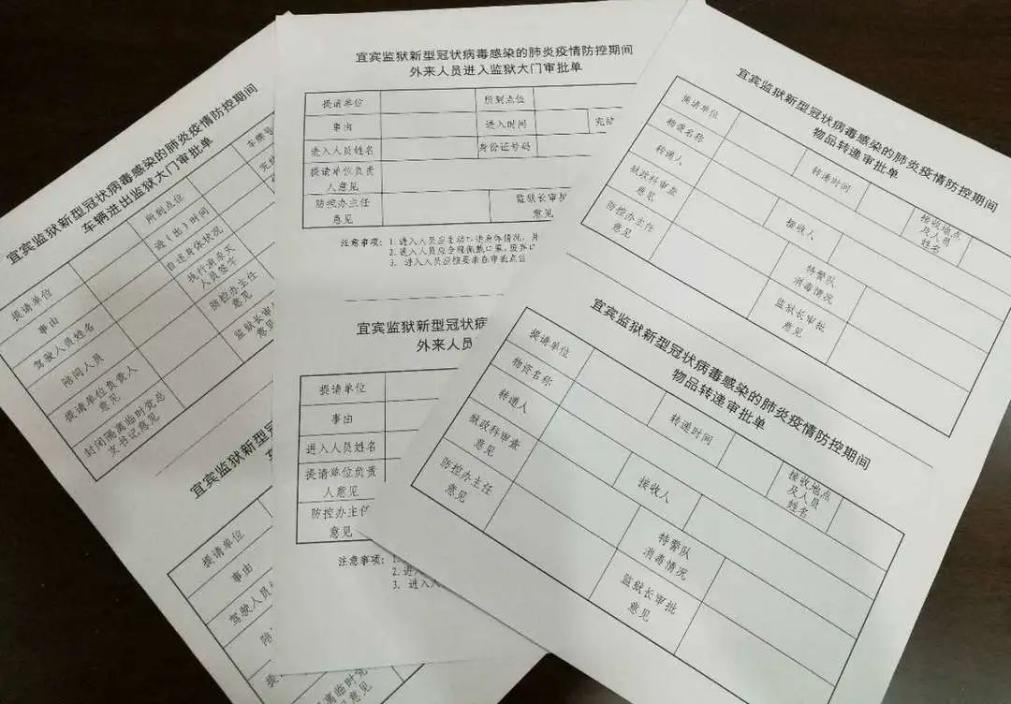 宜宾监狱新型冠状病毒感染的肺炎疫情防控期间
车辆进出监狱大门审批单
提请单位
所到点位
车牌号
事由
进（出）时间
驾驶人员姓名
自述身体状况
陪同人员
人员签字
提请单位负责人
意见
防控办主任
意见
封闭隔离临时党总
支书记意见
监狱长审
意见
宜宾监狱新型冠
提请单位
事由
驾驶人员
陪
提
离临时党
意见
宜宾监狱新型冠状病毒感染的肺炎疫情防控期间
外来人员进入监狱大门审批单
提请单位 所到点位
事由 进入时间
进入人员姓名 身份证号码
提请单位负责
人意见
防控办主任
意见
监狱长审
意见
注意事项：1. 进入人员应主动
2. 进入人员应全程佩戴口罩，
3. 进入人员应按要求在审批点位
宜宾监狱新型冠状病
外来人员
提请单位
事由
进入人员姓名
提请单位负责
人意见
防控办主任
意见
注意事项：1.
2. 进
3. 进入人
宜宾监狱新型冠状病毒感染的肺炎疫情防控期间
物品转递审批单
提请单位
物资名称
转递人 转递时间
狱政科审查
意见
接收人
接收地点
及人员
姓名
防控办主任
意见
特警队
消毒情况
监狱长审批
意见
宜宾监狱新型冠状病毒感染的肺炎疫情防控期间
物品转递审批单
提请单位
物资名称
转递人 转递时间
狱政科审查
意见
接收人
接收地点
及人员
姓名
防控办主任
意见
特警队
消毒情况
监狱长审批
意见